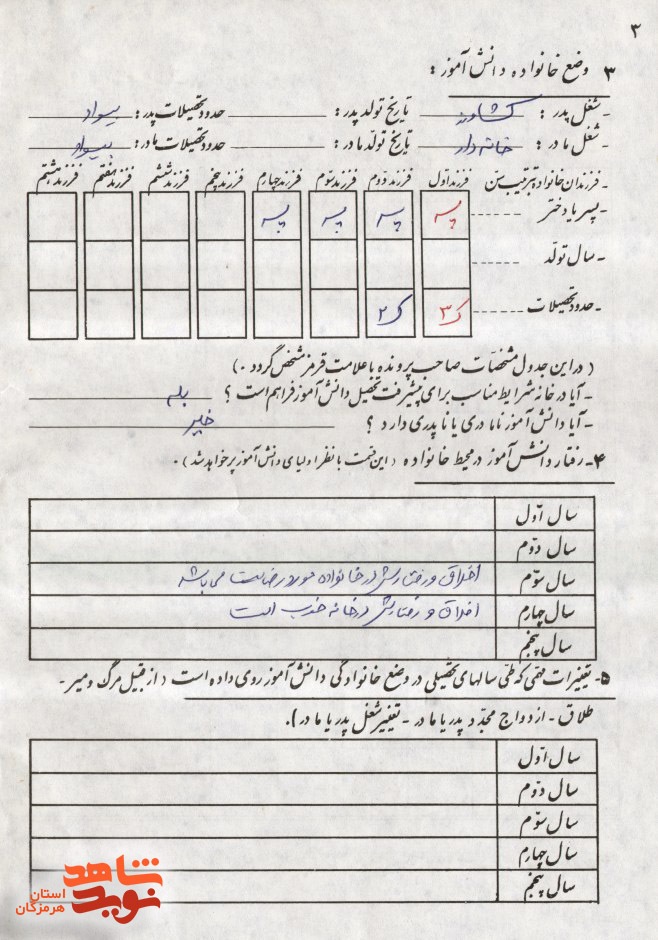 ۳
۳ وضع خانواده دانش آموز :
- شغل پدر : کشاورز تاریخ تولد پدر : حدود تحصیلات پدر : بیسواد
- شغل مادر : خانه دار تاریخ تولد مادر : حدود تحصیلات مادر : بیسواد
- فرزندان خانواده بترتیب سن فرزند اول فرزند دوم فرزند سوم فرزند چهارم فرزند پنجم فرزند ششم فرزند هفتم فرزند هشتم
- پسر یا دختر پسر پسر پسر پسر
- سال تولد
- حدود تحصیلات ک۳ ک۲
( در این جدول مشخصات صاحب پرونده با علامت قرمز مشخص گردد . )
- آیا در خانه شرایط مناسب برای پیشرفت تحصیل دانش آموز فراهم است ؟ بله
- آیا دانش آموز نامادری یا ناپدری دارد ؟ خیر
۴- رفتار دانش آموز در محیط خانواده ( این قسمت با نظر اولیای دانش آموز پر خواهد شد ) .
سال اول
سال دوم
سال سوم اخلاق و رفتارش در خانواده مورد رضایت می باشد
سال چهارم اخلاق و رفتارش در خانه خوب است
سال پنجم
۵- تغییرات مهمی که طی سالهای تحصیلی در وضع خانوادگی دانش آموز روی داده است ( از قبیل مرگ و میر -
طلاق - ازدواج مجدد پدر یا مادر - تغییر شغل پدر یا مادر ).
سال اول
سال دوم
سال سوم
سال چهارم
سال پنجم
نوید شاهد
استان هرمزگان